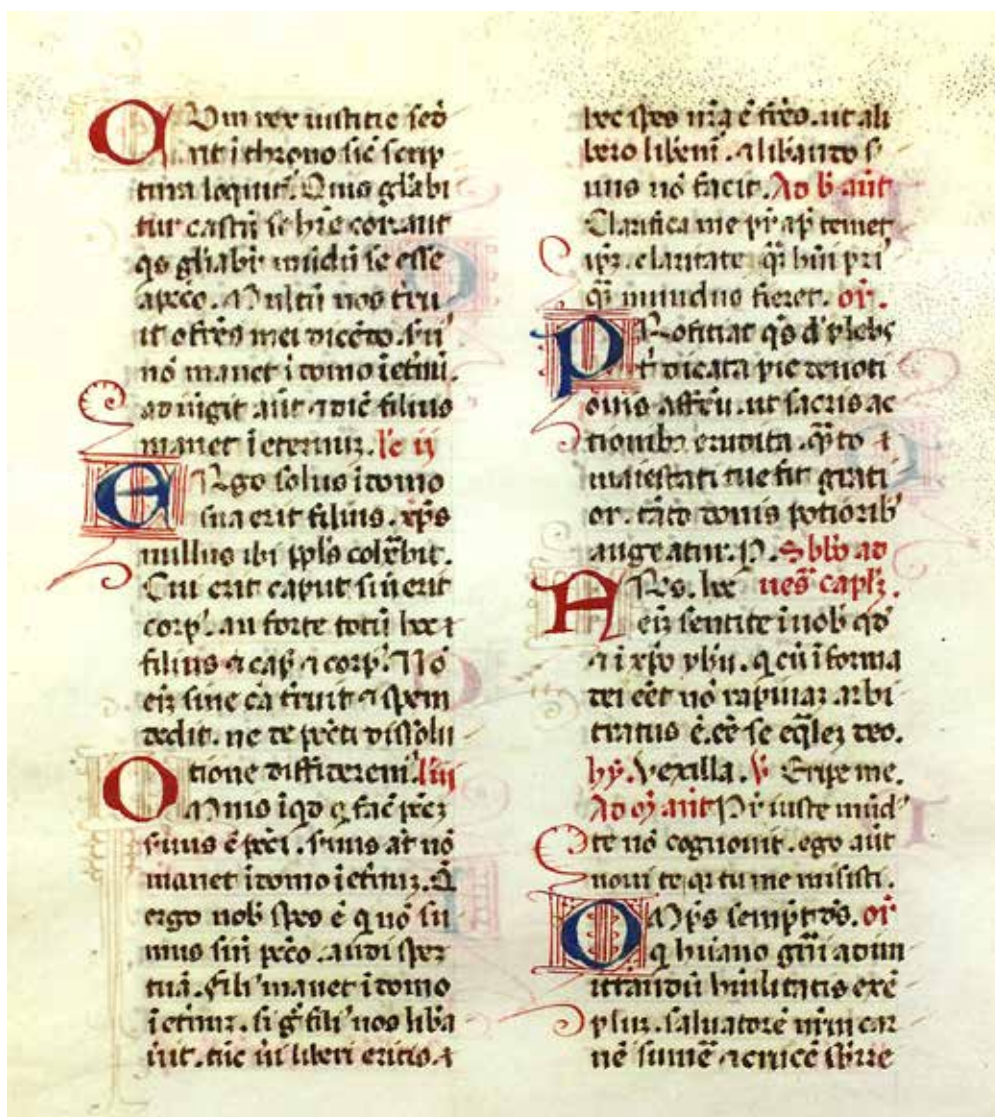 Cum rex iusticie sed
erit i throno sic scrip
tura loquit. Quis glabi
tur castu se hre cor. aut
qs gliabr mudu se esse
a pcco. Multu nos tru
it o fres mei dicedo. Sru
no manet i domo i etnu.
adiugit aut dic filius
manet i eternuz. le ii
Ergo solus i domo
sua erit filius. xps
nullus ibi ppls cohebit.
Cui erit caput si n erit
corp. an forte totu hoc
filius cap corp. No
eiz sine ca truit spem
dedit. ne de pcti dissolu
tione diffiderem. l iii
Omnis iqd q fac pccz
suus e pcci. suus at no
manet i domo i etnuz. Q
ergo nob spes e q no su
mus sin pcco. audi spez
tua. fili manet i domo
i etnuz. si g fili nos liba
uit. tuc ui liberi eritis.
hec spes nra e fres. ut a li
bero liberi. libando s
uus no facit. Ad b aut
Clarifica me pr ap temet
ipz. claritate q hui pri
q mundus fieret. or.
Proficiat qs d plebs
t dicata pie deuoti
onis affcu. ut sacris ac
tionibz erudita. qto
maiestati tue fit grati
or. tato donis potiorib
augeatur. P. Sbbo ad
Fres. hoc ues capl.
eiz sentite i uob qd
i xpo yhu. q cu i forma
dei eet no rapinaz arbi
tratus e. ee se eqlez deo.
hy. Vexilla. V Eripe me.
Ad m aut Pr iuste mud
te no cognouit. ego aut
noui te qr tu me misisti.
Omps sempt ds. or
q huano gni ad im
itandu huilitatis exe
pluz. saluatore nrm car
ne sume cruce sbire